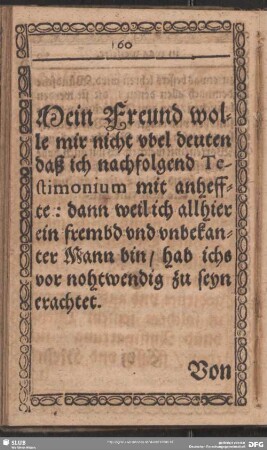 160
Mein Freund wol-
le mir nicht vbel deuten
daß ich nachfolgend Te-
stimonium mit anheff-
te: dann weil ich allhier
ein frembd vnd vnbekan-
ter Mann bin / hab ichs
vor nohtwendig zu seyn
erachtet.
Von
SLUB
DFG